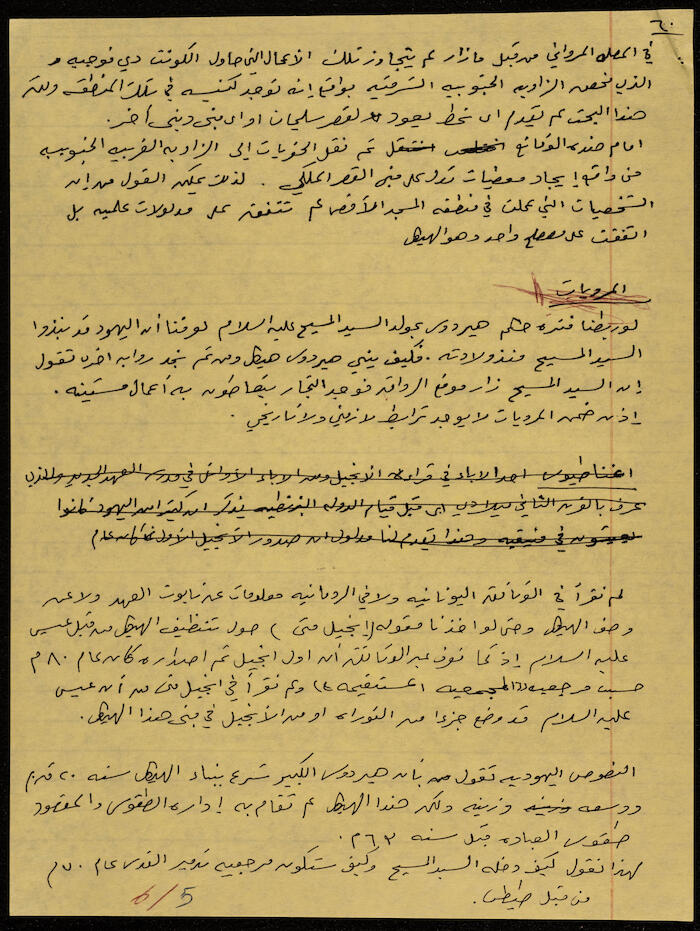 ٦٠
في المصلى المرواني من قبل مازار لم يتجاوز تلك الاعمال التي حاول الكونت دي فوجيه و
الذي فحص الزاويه الجنوبيه الشرقيه بواقع انه توجد كنيسه في تلك المنطقه ولكن
هذا البحث لم يقدم اي مخطط يعود لقصر سليمان او اي مبنى ديني آخر.
امام هذه الوقائع انتقل تم نقل الحفريات إلى الزاويه الغربيه الجنوبيه
من واقع إيجاد معطيات تدل على مبنى القصر الملكي. لذلك يمكن القول من ان
الشخصيات التي عملت في منطقه المسجد الأقصى لم تتفق على مدلولات علميه بل
اتفقت على مصطلح واحد وهو الهيكل
المرويات
لو ربطنا فترة حكم هيردوس بمولد السيد المسيح عليه السلام لعرفنا أن اليهود قد نبذوا
السيد المسيح منذ ولادته. فكيف يبني هيردوس هيكل ومن ثم نجد روايه اخرى تقول
إن السيد المسيح زار موقع الرواق فوجد التجار يتعاطون به أعمال مشينه.
إذن ضمن المرويات لا يوجد ترابط لا زمني ولا تاريخي.
اغناطيوس احد الاباء في قراءة الانجيل ومن الاباء الأوائل في مدرسة العهد الجديد والذي
عرف بالقرن الثاني ميلادي اي قبل قيام الدوله البيزنطيه يذكر ان كثير من اليهود كانوا
يعيشون في فينيقيه وهذا يقدم لنا مدلول ان صدور الانجيل الأول كان عام
لم نقرأ في الوثائق اليونانيه ولا في الرومانيه معلومات عن تابوت العهد ولا عن
وصف الهيكل وحتى لو اخذنا مقوله (إنجيل متى) حول تنظيف الهيكل من قبل عيسى
عليه السلام إذ كما نعرف عبر الوثائق أن اول انجيل تم اصداره كان عام ٨٠م
حسب مرجعيه المستقيمه ولم نقرأ في انجيل متى من أن عيسى
عليه السلام قد وضع جزءا من التوراه او من الأنجيل في مبنى هذا الهيكل.
النصوص اليهوديه تقول من بأن هيردوس الكبير شرع ببناء الهيكل سنه ٢٠ ق.م
ووسعه وزينه ولكن هذا الهيكل لم تقام به إداره الطقوس والمقصود
طقوس العباده قبل سنه ٦٣م.
لهذا نقول كيف دخله السيد المسيح وكيف ستكون مرجعيه تدمير القدس عام ٧٠م
من قبل طيطس.
6/5